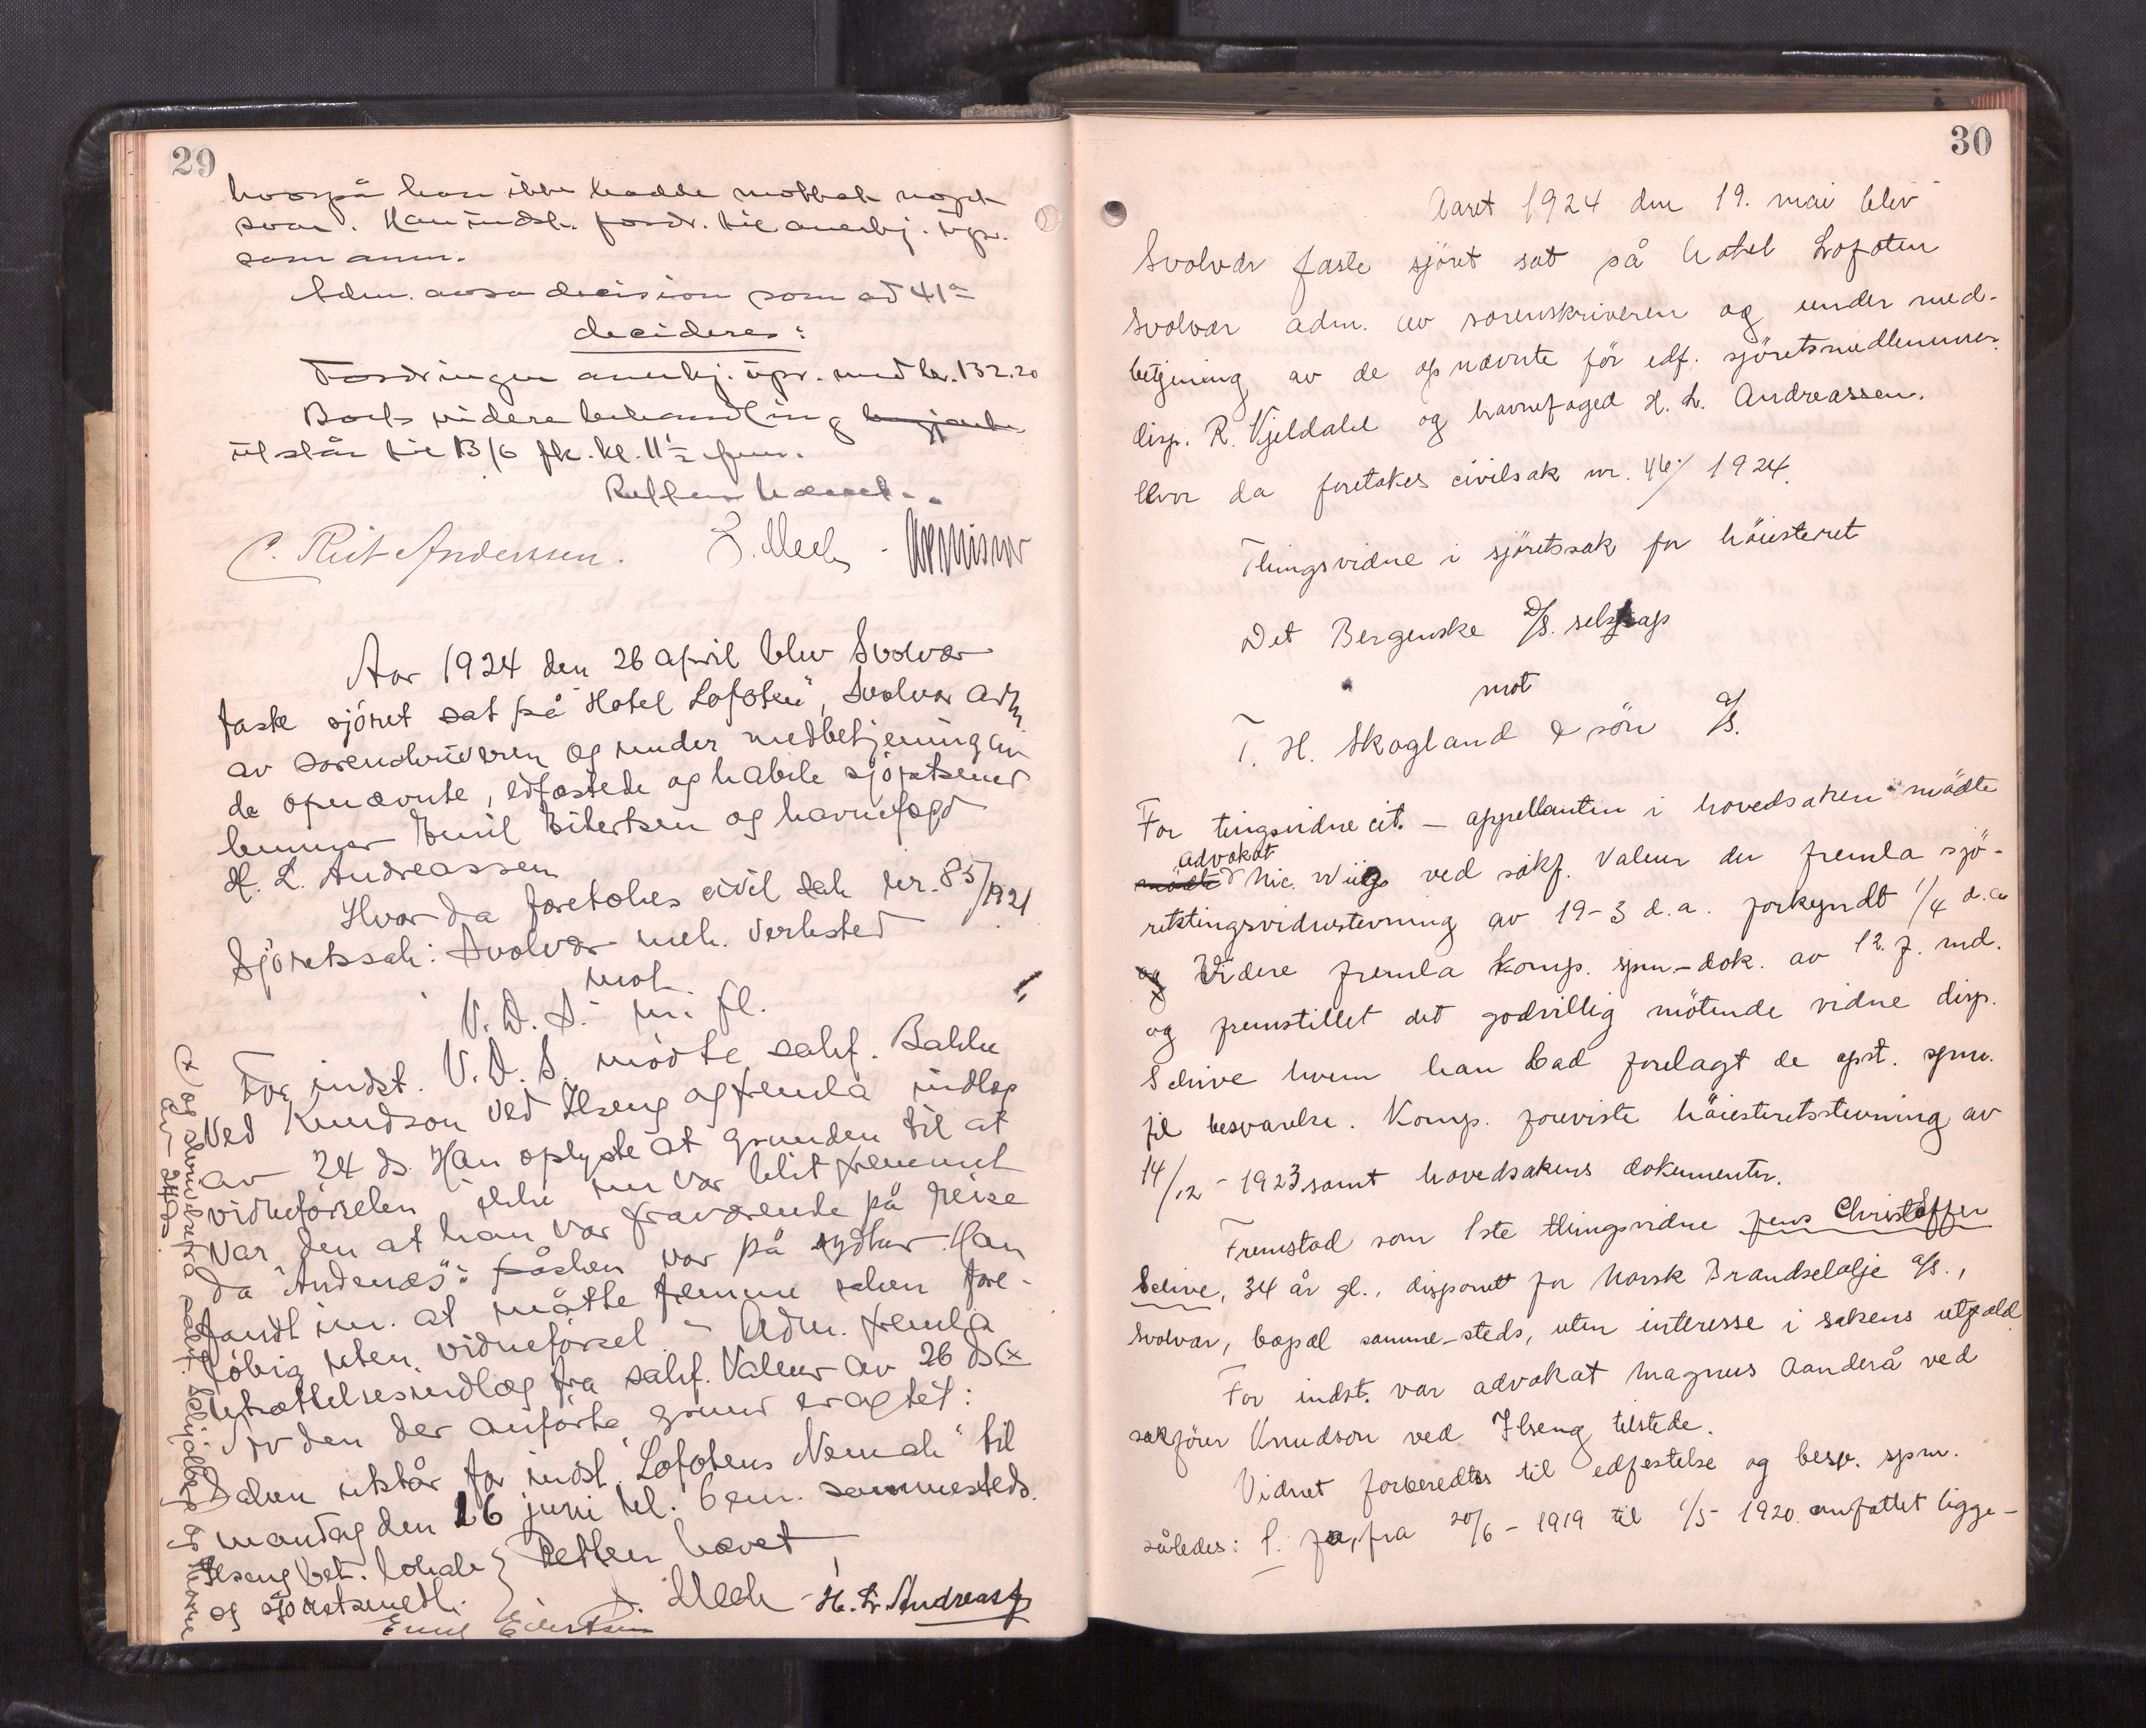 29
hvorpå han ikke hadde mottat noget
svar. Han indst. fordr. til anerkj. upr.
som anm.
Adm. avsa decision som ad 41
decideres:
Fordringen anerkj. upr. med kr. 132.20
Boets videre behandling
utstår til 13/6 fk. kl. 11½ fm.
Retten hævet.
C. Riit Anderssen. J. Mech
Aar 1924 den 26 april blev Svolvær
faste sjöret sat på "Hotel Lofoten", Svolvær adm
av sorenskriveren og under medbetjening av
de opnævnte, edfæstede og habile sjöretsmed
lemmer Emil Eilertsen og havnefogd
H. L. Andreassen
Hvor da foretokes civil sak nr. 85/1921
Sjöretssak: Svolvær mek. Verksted
mot
V. D. S. m. fl.
For indst. V. D. S. mödte sakf. Bakke
ved Knudson ved Ilseng og fremla indlæg
av 24 ds. Han oplyste at grunden til at
vidneförselen ikke nu var blit fremmet
var den at han var fraværende på reise
da "Andenæs" var på sydtur. Han
fandt nu at måtte fremme saken fore-
löbig uten vidneförsel - Adm. fremla
utsættelsesindlæg fra sakf. Valeur av 26 ds (x
I v den der anförte grund eragtet:
Saken utstår for indst. "Lofotens Nemah" til
mandag den 16 juni kl. 6 em. sammesteds.
Ilseng bet. lokale } Retten hævet
og sjöretsmedl.
J. Mech - H. L. Andreassen
Emil Eilertsen
x) og skrivelse fra sakf. Schjölberg
av 24 ds.
30
Aaret 1924 den 19. mai blev
Svolvær faste sjöret sat på hotel Lofoten
Svolvær adm. av sorenskriveren og under med-
betjening av de opnævnte för edf. sjöretsmedlemmer
disp. R. Kjeldahl og havnefoged H. L. Andreassen.
Hvor da foretokes civilsak nr. 46/1924.
Thingsvidne i sjöretssak for höiesteret
Det Bergenske D/S. selskap
mot
T. H. Skogland & sön A/S.
For tingsvidne cit. - appellanten i hovedsaken mödte
advokat
mödte Nic. Wiig ved sakf. Valeur der fremla sjö-
retstingsvidnestevning av 19-3 d.a. forkyndt 1/4 d.a.
og Videre fremla komp. spm.-dok. av 12. f. md.
og fremstillet det godvillig mötende vidne disp.
Schive hvem han bad forelagt de opst. spm.
til besvarelse. Komp. foreviste höiesteretsstevning av
14/12 - 1923 samt hovedsakens dokumenter.
Fremstod som 1ste thingsvidne Jens Christoffer
Schive, 34 år gl., disponent for Norsk Brændselolje A/S.,
Svolvær, bopæl samme-steds, uten interesse i sakens utfald.
For indst. var advokat Magnus Aanderå ved
sakförer Knudson ved Ilseng tilstede.
Vidnet forberedtes til edfestelse og besv. spm.
således: 1. Ja, fra 20/6 - 1919 til 1/5 - 1920 omfattet ligge-